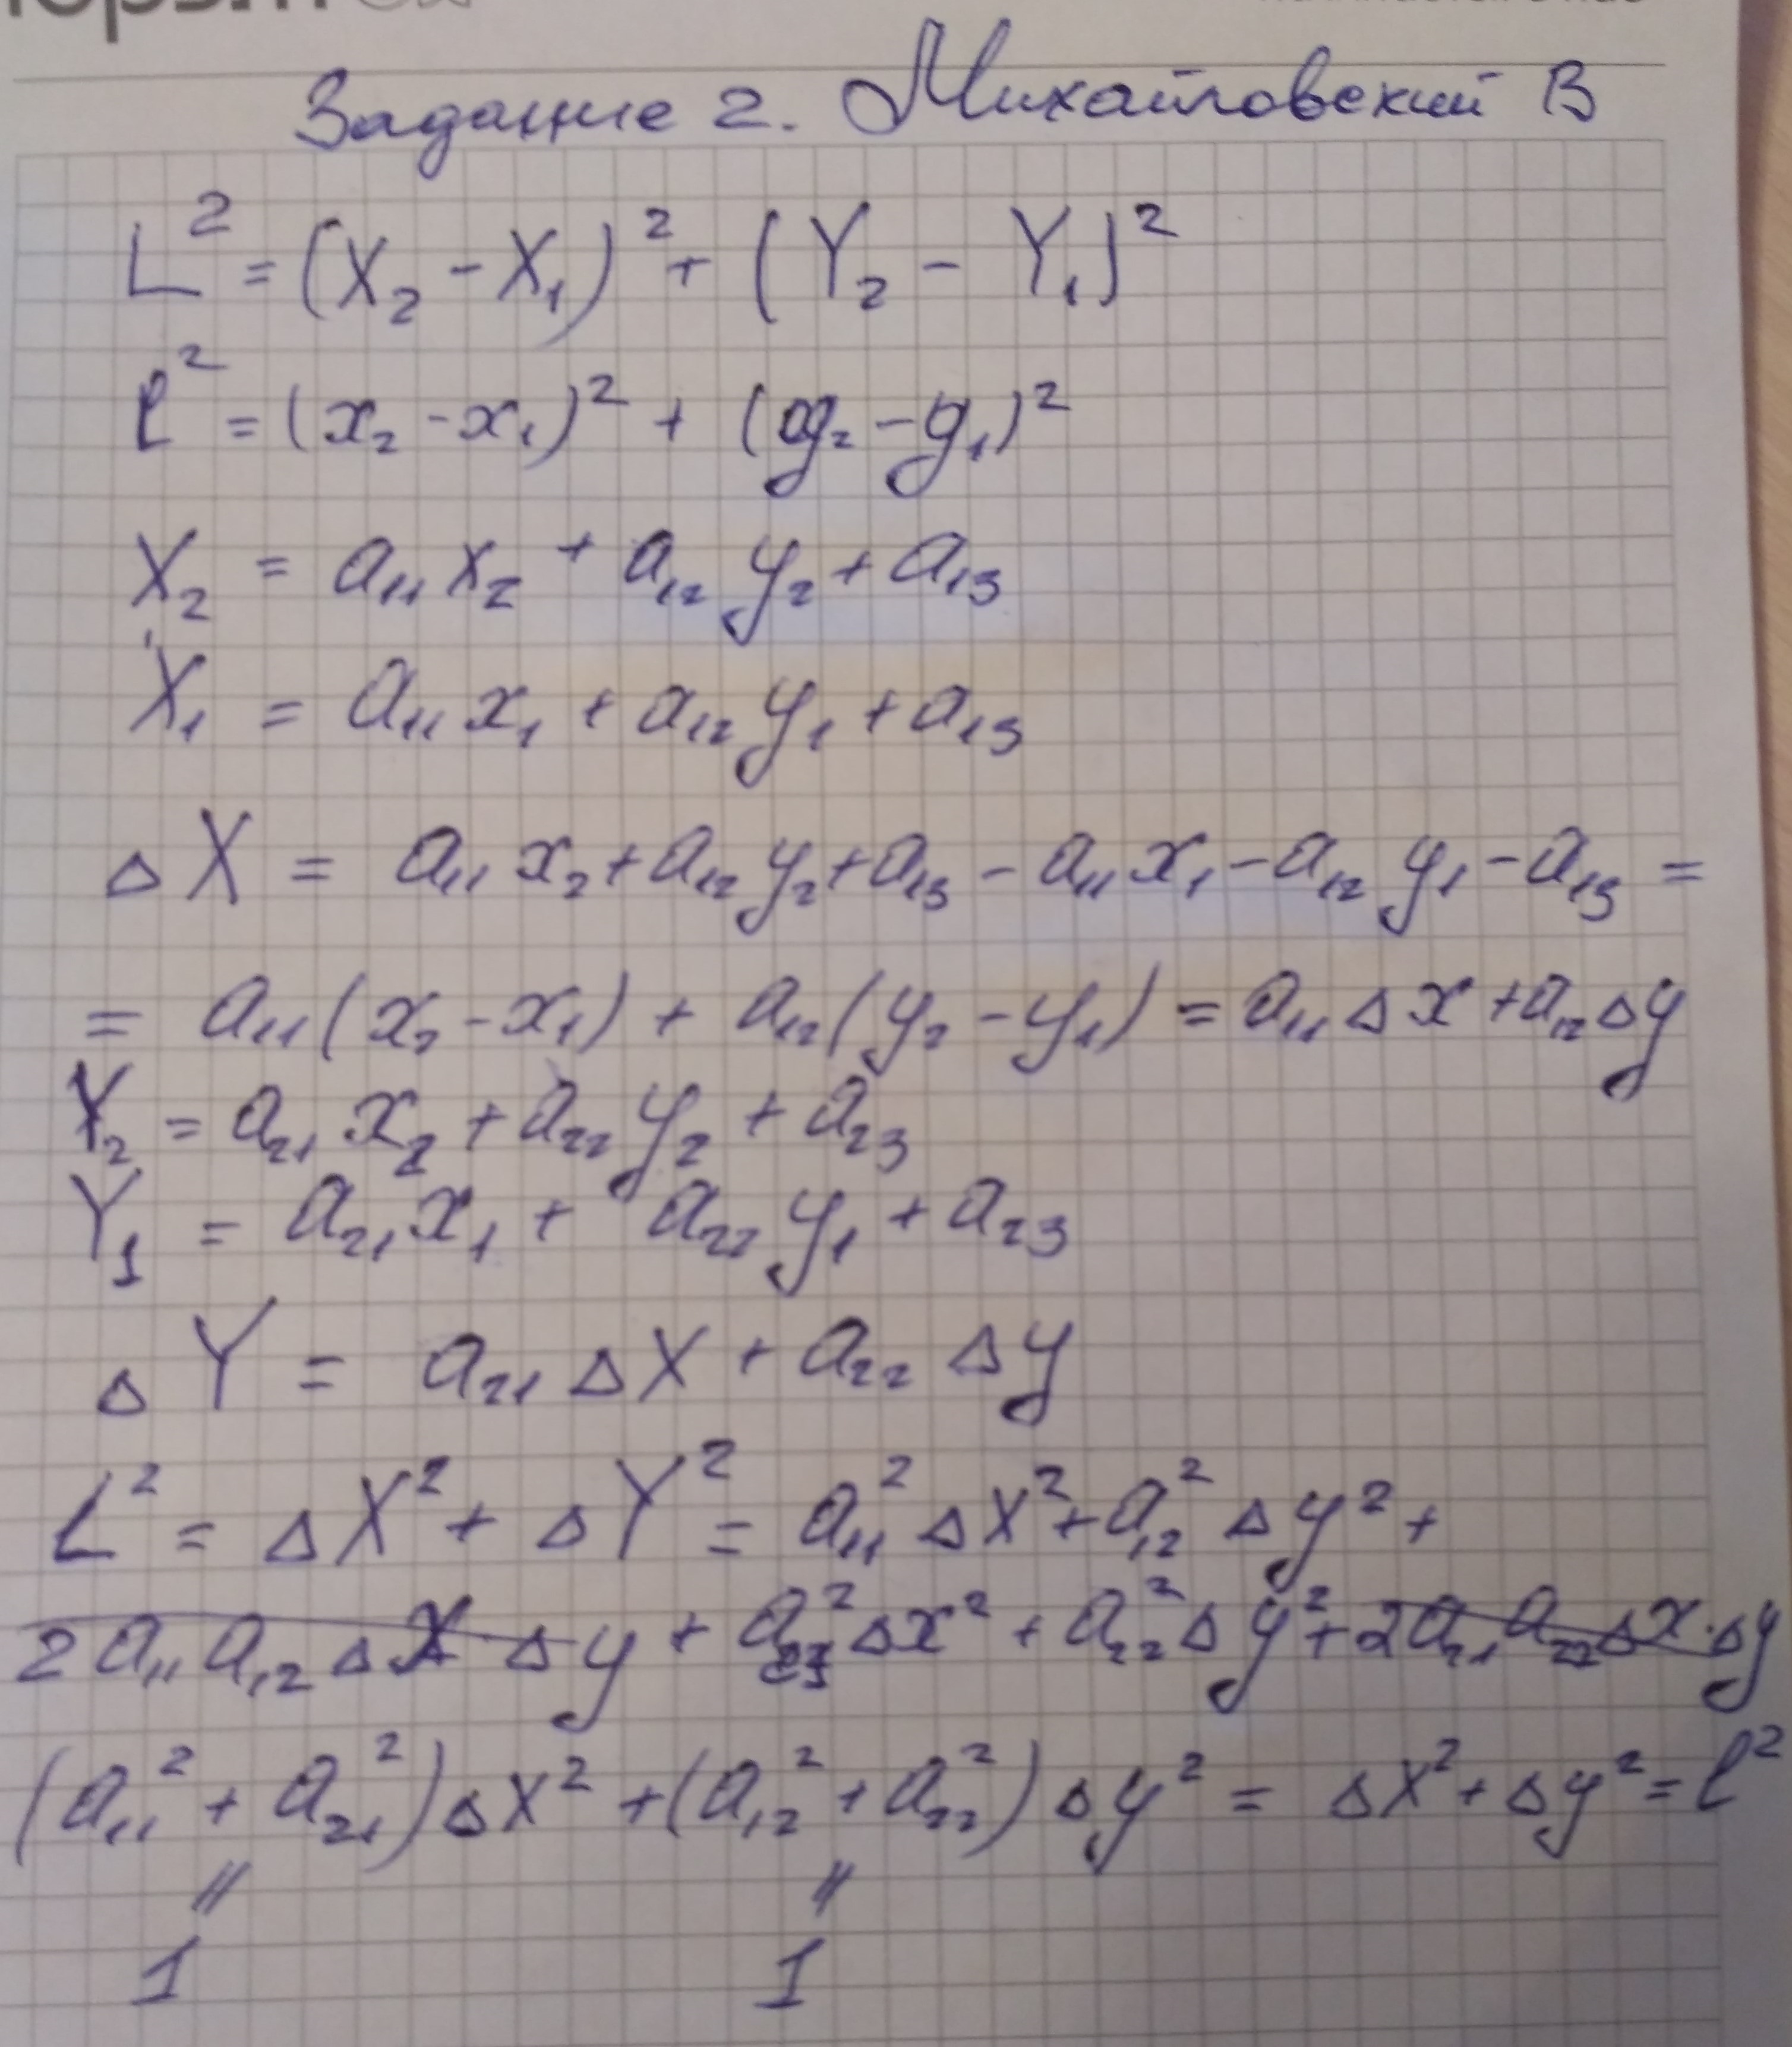 Задание 2. Михайловский В
L² = (X₂ - X₁)² + (Y₂ - Y₁)²
l² = (x₂ - x₁)² + (y₂ - y₁)²
X₂ = a₁₁x₂ + a₁₂y₂ + a₁₃
X₁ = a₁₁x₁ + a₁₂y₁ + a₁₃
ΔX = a₁₁x₂ + a₁₂y₂ + a₁₃ - a₁₁x₁ - a₁₂y₁ - a₁₃ =
= a₁₁(x₂ - x₁) + a₁₂(y₂ - y₁) = a₁₁Δx + a₁₂Δy
Y₂ = a₂₁x₂ + a₂₂y₂ + a₂₃
Y₁ = a₂₁x₁ + a₂₂y₁ + a₂₃
ΔY = a₂₁Δx + a₂₂Δy
L² = ΔX² + ΔY² = a₁₁²Δx² + a₁₂²Δy² +
2a₁₁a₁₂Δx·Δy + a₂₁²Δx² + a₂₂²Δy² + 2a₂₁a₂₂Δx·Δy
(a₁₁² + a₂₁²)Δx² + (a₁₂² + a₂₂²)Δy² = Δx² + Δy² = l²
= =
1 1